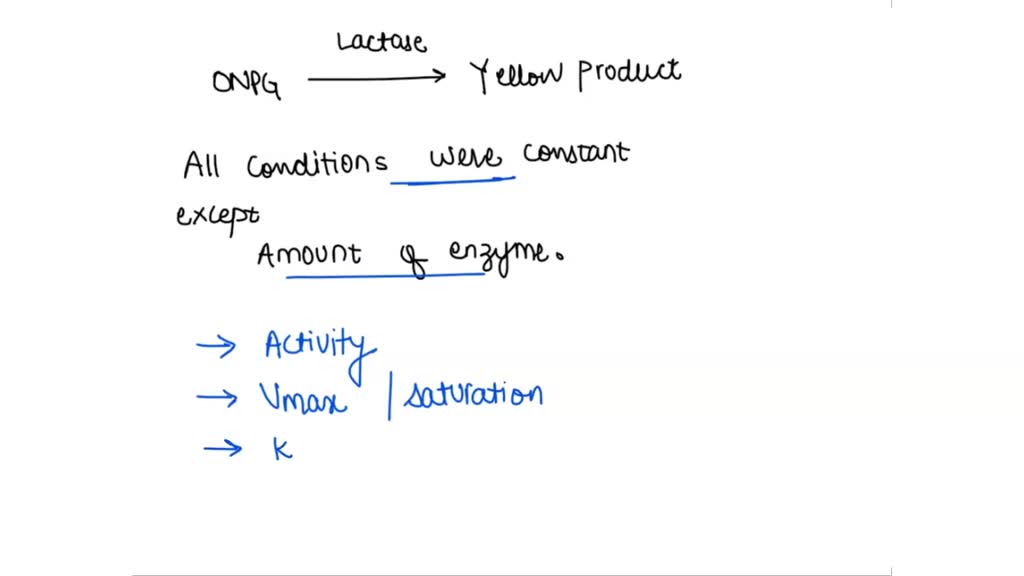 Lactase
ONPG → Yellow Product
All conditions were constant
except
Amount of enzyme.
→ Activity
→ Vmax | saturation
→ K